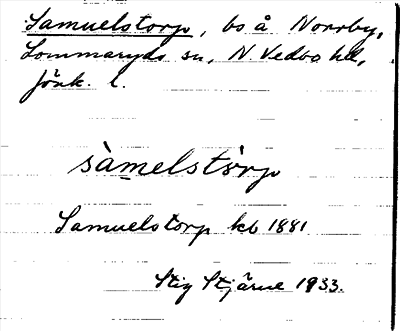 Samuelstorp, bs å Norrby,
Lommaryds sn, N. Vedbo hd,
Jönk. l.
sàmelstòrp
Samuelstorp kb 1881
Stig Stjärne 1933.